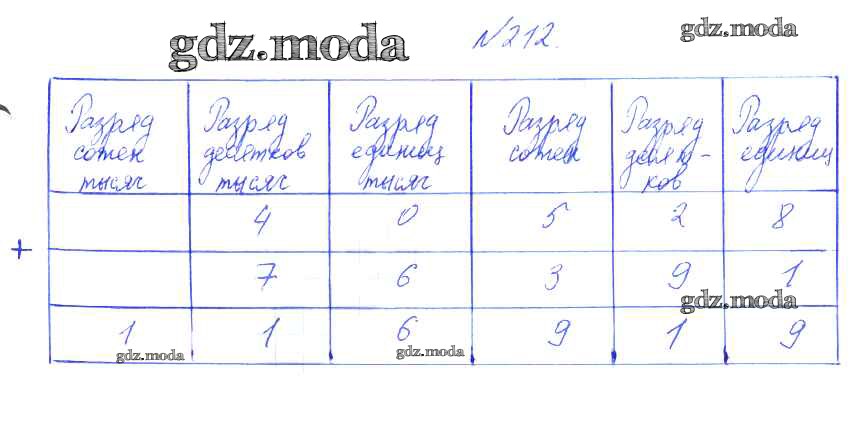 gdz.moda №212. gdz.moda
Разряд Разряд Разряд Разряд Разряд Разряд
сотен десятков единиц сотен десят- единиц
тысяч тысяч тысяч ков
4 0 5 2 8
+
7 6 3 9 1
gdz.moda
1 1 6 9 1 9
gdz.moda gdz.moda